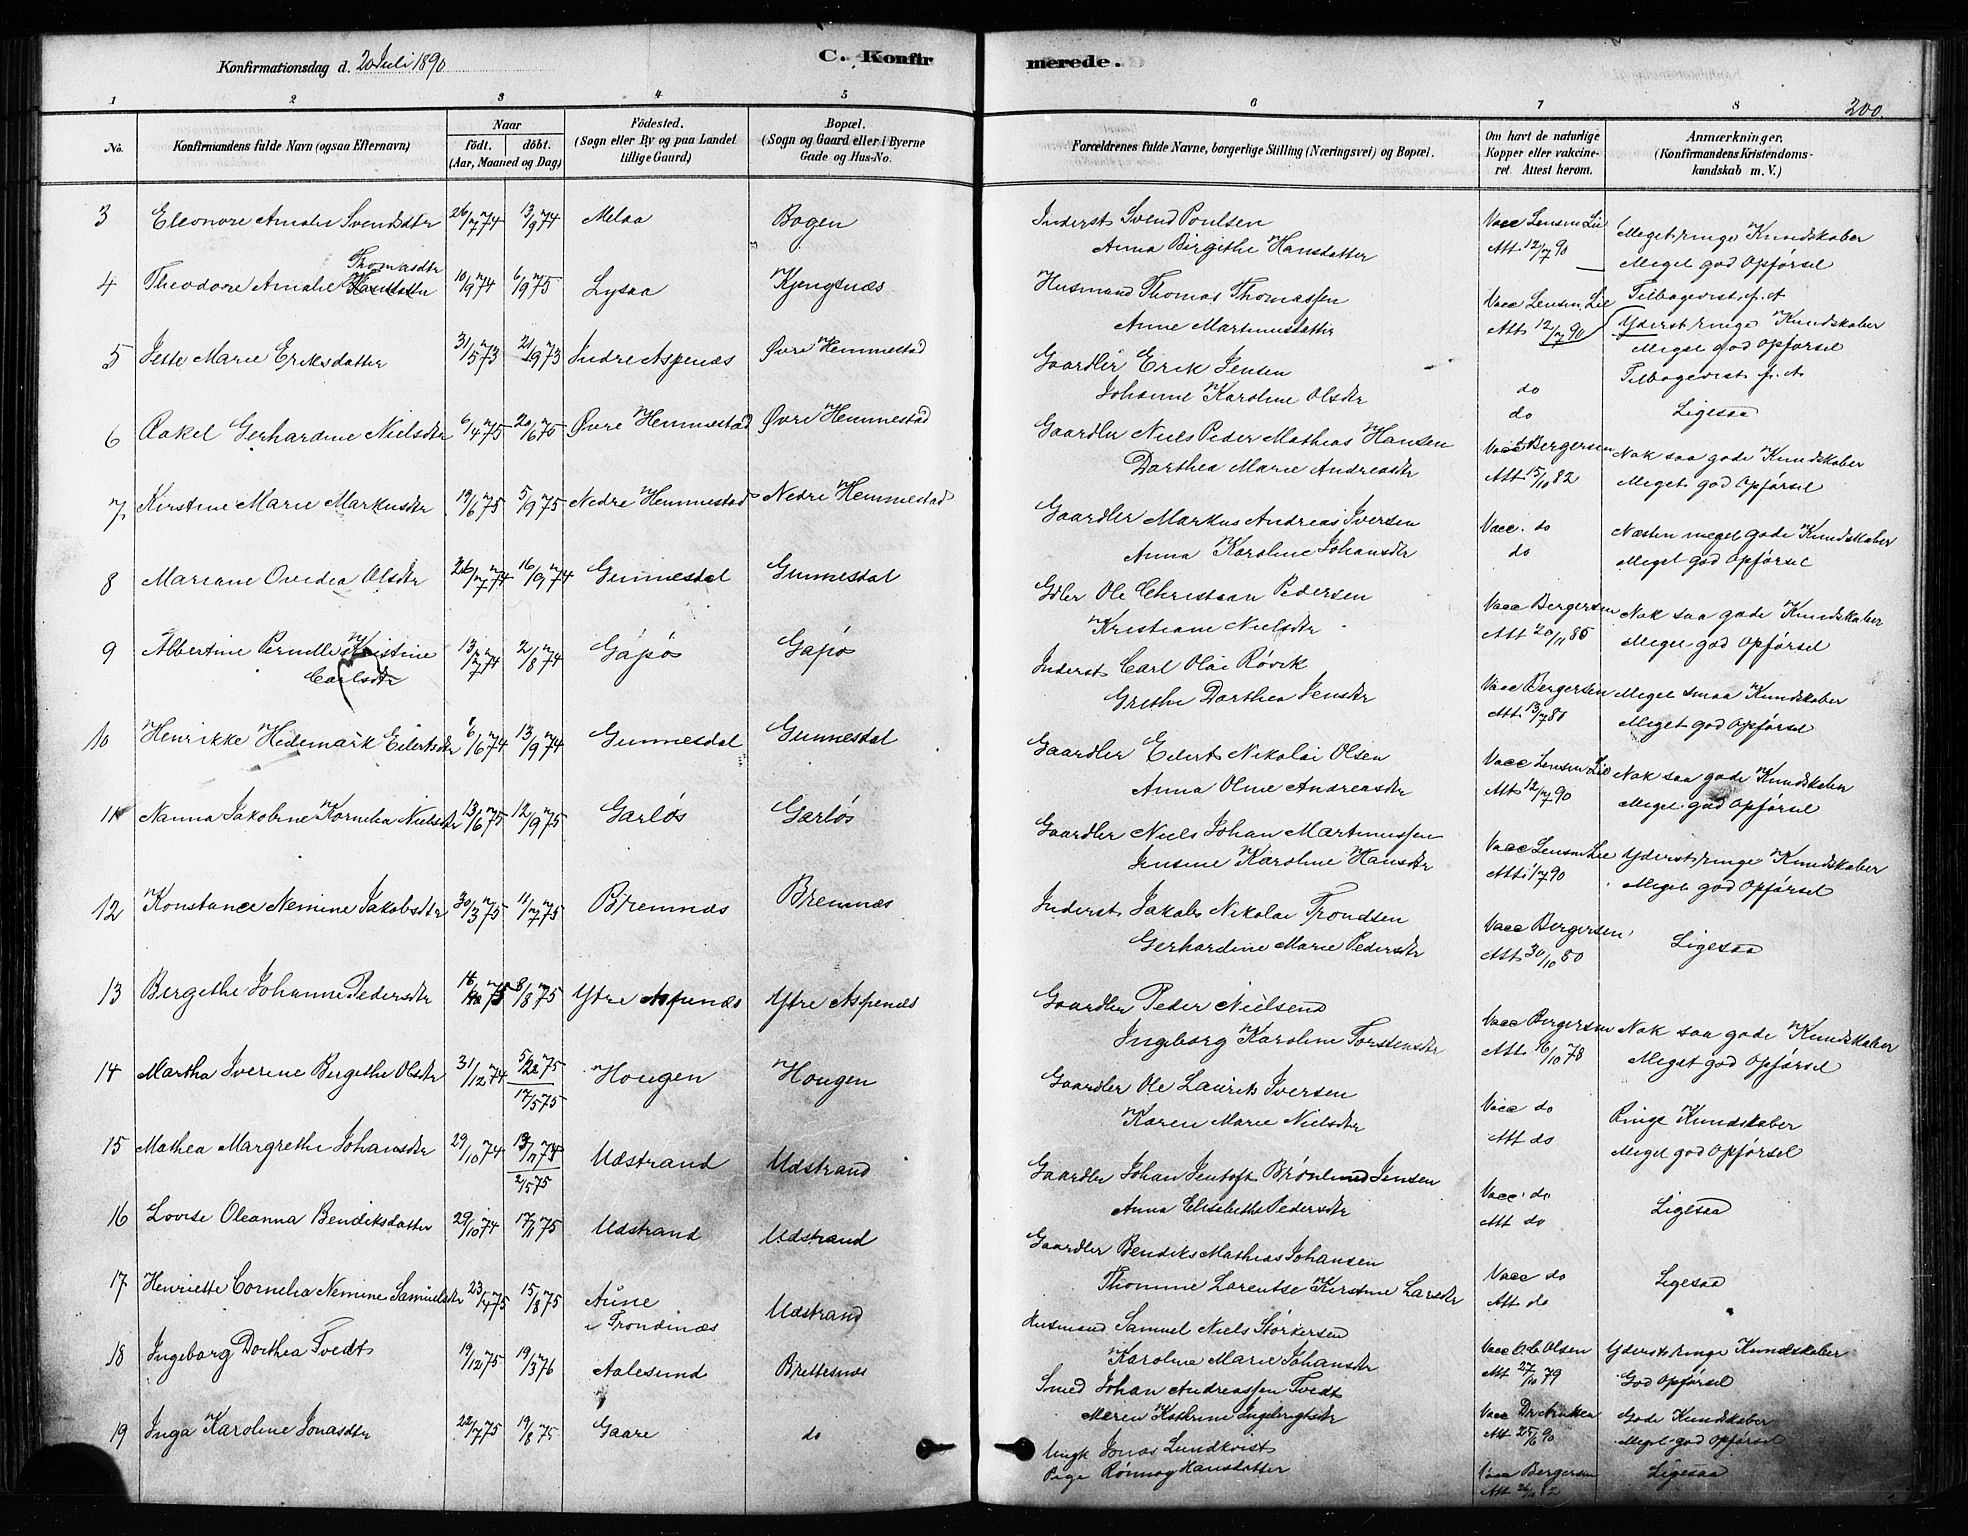 Konfirmationsdag d. 20 Juli 1890
C. Konfirmerede.
200.
1 2 3 4 5 6 7 8
No.
Konfirmandens fulde Navn (ogsaa Efternavn)
Naar
födt. döbt.
(Aar, Maaned og Dag)
Födested.
(Sogn eller By og paa Landet
tillige Gaard)
Bopæl.
(Sogn og Gaard eller i Byerne
Gade og Hus-No.
Forældrenes fulde Navne, borgerlige Stilling (Næringsvei) og Bopæl.
Om havt de naturlige
Kopper eller vakcine-
ret. Attest herom.
Anmærkninger.
(Konfirmandens Kristendoms-
kundskab m. V.)
3 Eleonore Amalie Svendsdtr 26/7 74 13/9 74 Melaa Bogen Inderst Svend Poulsen Vacc Lensm. Lie Meget ringe Kundskaber
Anna Birgithe Hansdatter Att 12/7 90 Meget god Opførsel
Thomasdtr
4 Theodore Amalie 10/9 74 6/9 75 Lysaa Kjengsnæs Husmand Thomas Thomassen Vacc Lensm. Lie Tilbagevist f. A
Anne Martinusdatter Att 12/7 90 Yderst ringe Kundskaber
Meget god Opførsel
5 Jette Marie Eriksdatter 31/5 73 21/9 73 Indre Aspenæs Øvre Hemmestad Gaardbr Erik Jensen do Tilbagevist f. A
Johanne Karoline Olsdtr do Ligesaa
6 Rakel Gerhardine Nielsdtr 6/4 75 20/6 75 Øvre Hemmestad Øvre Hemmestad Gaardbr Niels Peder Mathias Hansen Vacc Bergersen Nok saa gode Kundskaber
Dorthea Marie Andreasdtr Att 15/10 82 Meget god Opførsel
7 Kirstine Marie Markusdtr 19/6 75 5/9 75 Nedre Hemmestad Nedre Hemmestad Gaardbr Markus Andreas Iversen Vacc. do Næsten meget gode Kundskaber
Anna Karoline Johansdtr do Meget god Opførsel
8 Mariane Ovedia Olsdtr 26/7 74 16/9 74 Gunnesdal Gunnesdal Gdbr Ole Christian Pedersen Vacc Bergersen Nok saa gode Kundskaber
Kristiane Nielsdtr Att 20/11 85 Meget god Opførsel
9 Albertine Pernelle Kristine 13/7 74 2/8 74 Gåpøs Gåpøs Inderst Carl Olai Røvik Vacc Bergersen Meget smaa Kundskaber
Carlsdtr Grethe Dorthea Jensdtr Att 13/7 81 Meget god Opførsel
10 Henrikke Hedemark Eilertsdtr 6/6 74 13/9 74 Gunnesdal Gunnesdal Gaardbr Eilert Nikolai Olsen Vacc Lensm. Lie Nok saa gode Kundskaber
Anna Oline Andreasdtr Att 12/7 90 Meget god Opførsel
11 Nanna Jakobine Kornelia Nielsdtr 13/6 75 12/9 75 Garløs Garløs Gaardbr Niels Johan Martinussen Vacc Lensm Lie Yderst ringe Kundskaber
Jensine Karoline Hansdtr Att 1/7 90 Meget god Opførsel
12 Konstance Nemine Jakobsdtr 30/3 75 11/7 75 Bremnæs Bremnæs Inderst Jakob Nikolai Trondsen Vacc Bergersen Ligesaa
Gerhardine Marie Pedersdtr Att 30/10 80
13 Bergethe Johanne Pedersdtr 8/8 75 Ytre Aspenæs Ytre Aspenæs Gaardbr Peder Nielsen Vacc Bergersen Nok saa gode Kundskaber
Ingeborg Karoline Torstensdtr Att 16/10 78 Meget god Opførsel
14 Martha Iverine Bergethe Olsdtr 31/12 74 5/2 75 Hougen Hougen Gaardbr Ole Laurits Iversen Vacc do Ringe Kundskaber
17/5 75 Karen Marie Nielsdtr Att do Meget god Opførsel
15 Mathea Margrethe Johansdtr 29/10 74 Udstrand Udstrand Gaardbr Johan Jentoft Brønlund Jensen Vacc. do Ligesaa
2/5 75 Anna Elisabeth Pedersdtr Att do
16 Lovise Oleanna Bendiksdatter 29/10 74 17/1 75 Udstrand Udstrand Gaardbr Bendiks Mathias Johansen Vacc do Ligesaa
Thomine Larentse Kirstine Larsdtr Att do
17 Henriette Cornelia Nemine Samuelsdtr 23/4 75 15/8 75 Aune Udstrand Husmand Samuel Niels Størkersen Vacc Ole Olsen Yderst ringe Kundskaber
i Trondenæs Karoline Marie Johansdtr Att 27/10 79 God Opførsel
18 Ingeborg Dorthea Tvedt 19/12 75 19/3 76 Aalesund Brettesnæs Smed Johan Andreassen Tvedt Vacc Dr Gode Kundskaber
Maren Kathrine Ingebrigtsdtr Att 25/6 90 Meget god Opførsel
19 Inga Karoline Jonasdtr 22/7 75 19/8 75 Gaare do Ungk Jonas Lundkvist Vacc Bergersen Ligesaa
Pige Rønnog Hansdatter Att 26/11 82